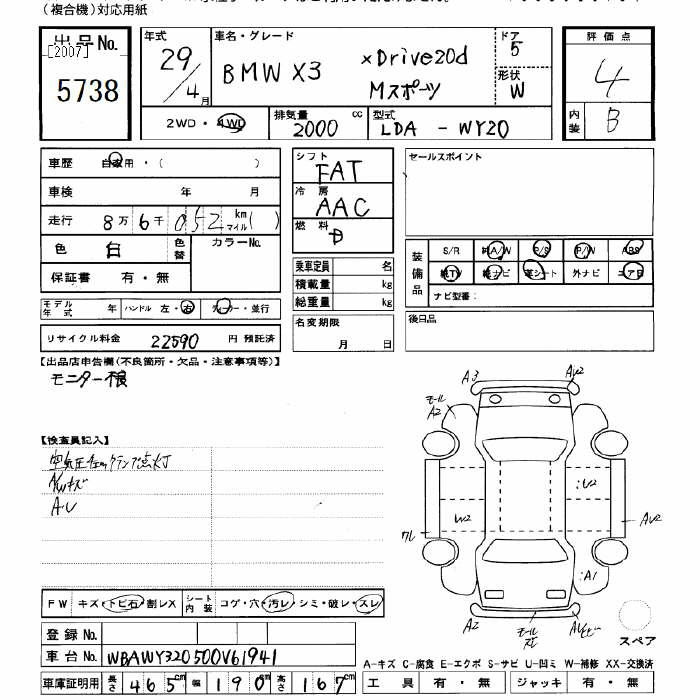 (複合機)対応用紙
出品No.
[2007]
5738
年式
29/4月
車名・グレード
BMW X3
xDrive20d
Mスポーツ
ドア
5
形状
W
評価点
4
内装
B
2WD・4WD
排気量
2000 cc
型式
LDA - WY20
車歴 自家用・( )
車検 年 月
走行 8万6千052 km マイル ( )
色 白 色替 カラーNo.
保証書 有・無
シフト
FAT
冷房
AAC
燃料
D
乗車定員 名
積載量 kg
総重量 kg
名変期限
月 日
セールスポイント
装備品
S/R 純A/W P/S P/W ABS
純TV 純ナビ 革シート 外ナビ エアB
ナビ型番:
後日品
モデル年式 年 ハンドル 左・右 ディーラー・並行
リサイクル料金 22590 円 預託済
【出品店申告欄(不良箇所・欠品・注意事項等)】
モニター不良
【検査員記入】
空気圧チェックランプ点灯
A/Wキズ
A・U
A3
AU2
モール
A2
U2
W2
ワレ
AU2
A1
A2
モール
スペア
FW キズ・トビ石・割レX シート内装 コゲ・穴・汚レ・シミ・破レ・スレ
登録No.
車台No. WBAWY320500V61941
車庫証明用 長さ 465cm 幅 190cm 高さ 167cm
A-キズ C-腐食 E-エクボ S-サビ U-凹ミ W-補修 XX-交換済
工具 有・無 ジャッキ 有・無